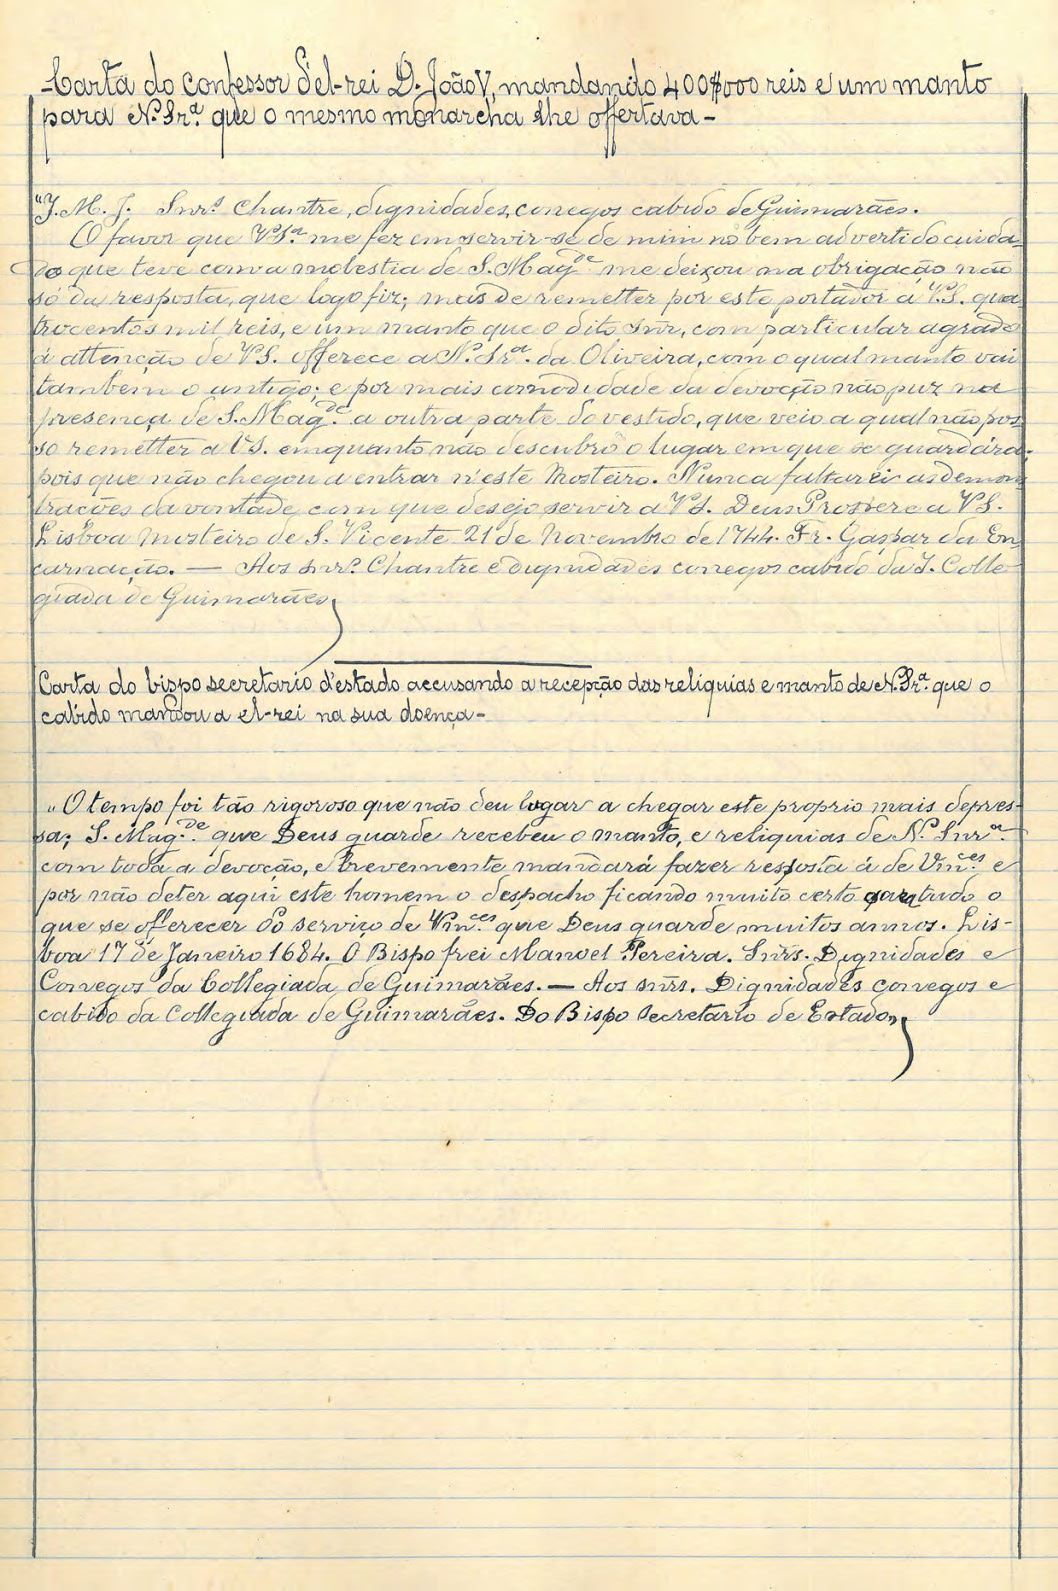 -Carta do confessor d'el-rei D. João V, mandando 400$000 reis e um manto
para N. Srª. que o mesmo monarcha lhe offertava-
"J. M. J. Snrs. Chantre, dignidades, conegos cabido de Guimarães.
O favor que V.Sª. me fez em servir-se de mim no bem advertido cuida-
do que teve com a molestia de S. Magde. me deixou na obrigação não
só da resposta, que logo fiz; mais de remetter por este portador a V.S. qua-
trocentos mil reis, e um manto que o dito snr, com particular agrado
á attenção de V.S. offerece a N. Srª. da Oliveira, com o qual manto vai
tambem o antigo; e por mais comodidade da devoção não puz na
presença de S. Magde. a outra parte do vestido, que veio a qual não pos-
so remetter a V.S. emquanto não descubro o lugar em que se guardára;
pois que não chegou a entrar n'este Mosteiro. Nunca faltarei as demons-
trações da vontade com que desejo servir a V.S. Deus Prospere a V.S.
Lisboa Mosteiro de S. Vicente 21 de Novembro de 1744. Fr. Gaspar da En-
carnação. — Aos snrs. Chantre e dignidades conegos cabido da I. Colle-
giada de Guimarães,
Carta do bispo secretario d'estado accusando a recepção das reliquias e manto de N. Srª. que o
cabido mandou a el-rei na sua doença-
"O tempo foi tão rigoroso que não deu logar a chegar este proprio mais depres-
sa; S. Magde. que Deus guarde recebeu o manto, e reliquias de N. Snrª.
com toda a devoção, e brevemente mandará fazer resposta á de Vmces e
por não deter aqui este homem o despacho ficando muito certo para tudo o
que se offerecer do serviço de Vmces. que Deus guarde muitos annos. Lis-
boa 17 de Janeiro 1684. O Bispo frei Manoel Pereira. Snrs. Dignidades e
Conegos da Collegiada de Guimarães. — Aos snrs. Dignidades conegos e
cabido da Collegiada de Guimarães. Do Bispo Secretario de Estado,,